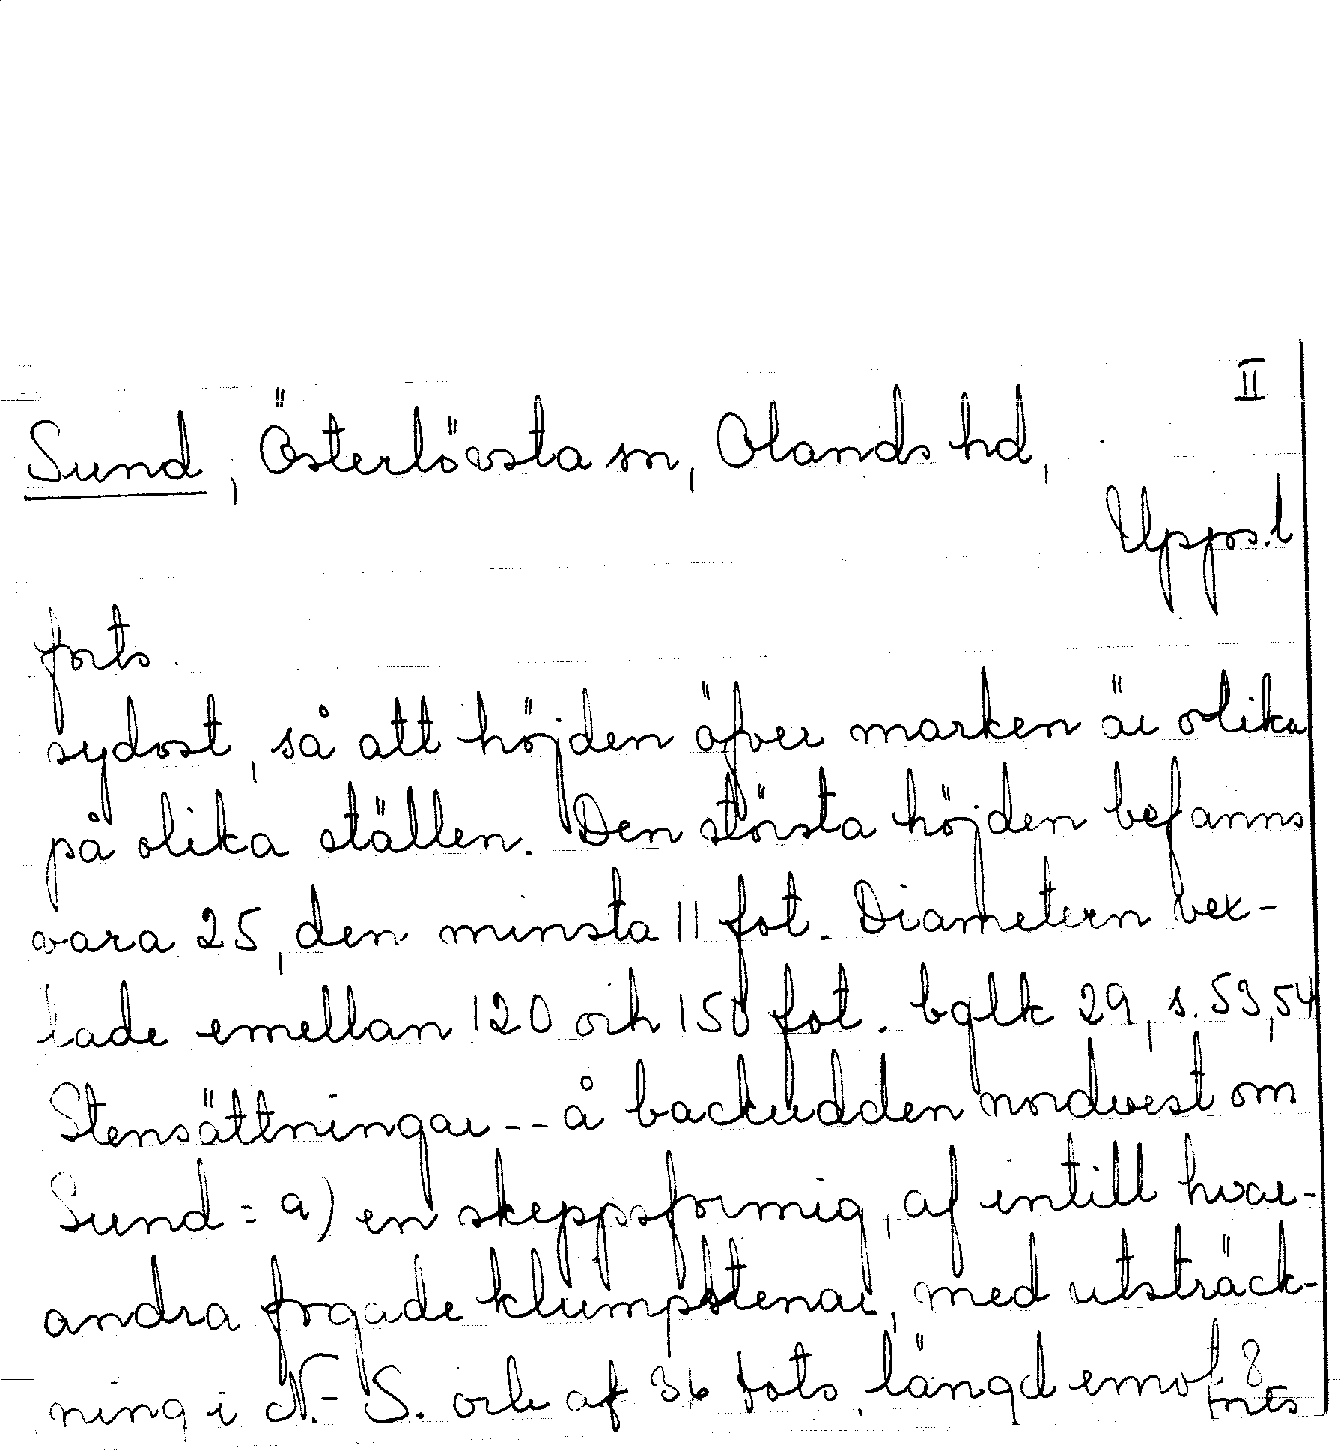 II
Sund, Österlövsta sn, Olands hd,
Upps.l
forts.
sydost, så att höjden öfver marken är olika
på olika ställen. Den största höjden befanns
vara 25, den minsta 11 fot. Diametern vex-
lade emellan 120 och 150 fot. bglk 29, s. 53,54
Stensättningar -- å backudden nordvest om
Sund = a) en skeppsformig, af intill hvar-
andra fogade klumpstenar, med utsträck-
ning i N.- S. och af 36 fots längd emot 8
forts